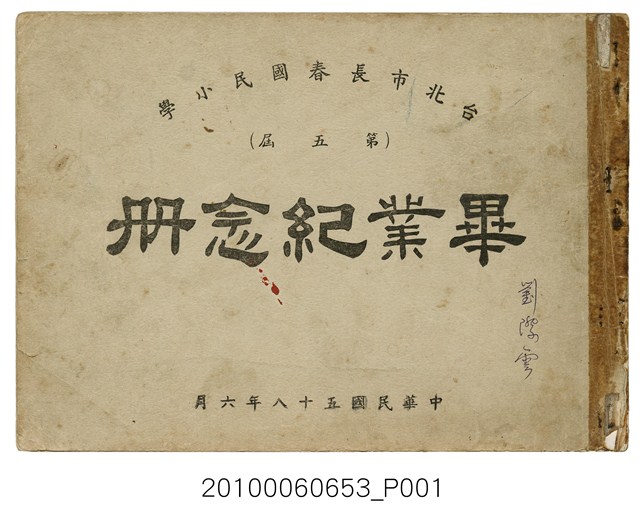 台北市長春國民小學
(第五屆)
畢業紀念冊
劉潔雲
中華民國五十八年六月
20100060653_P001